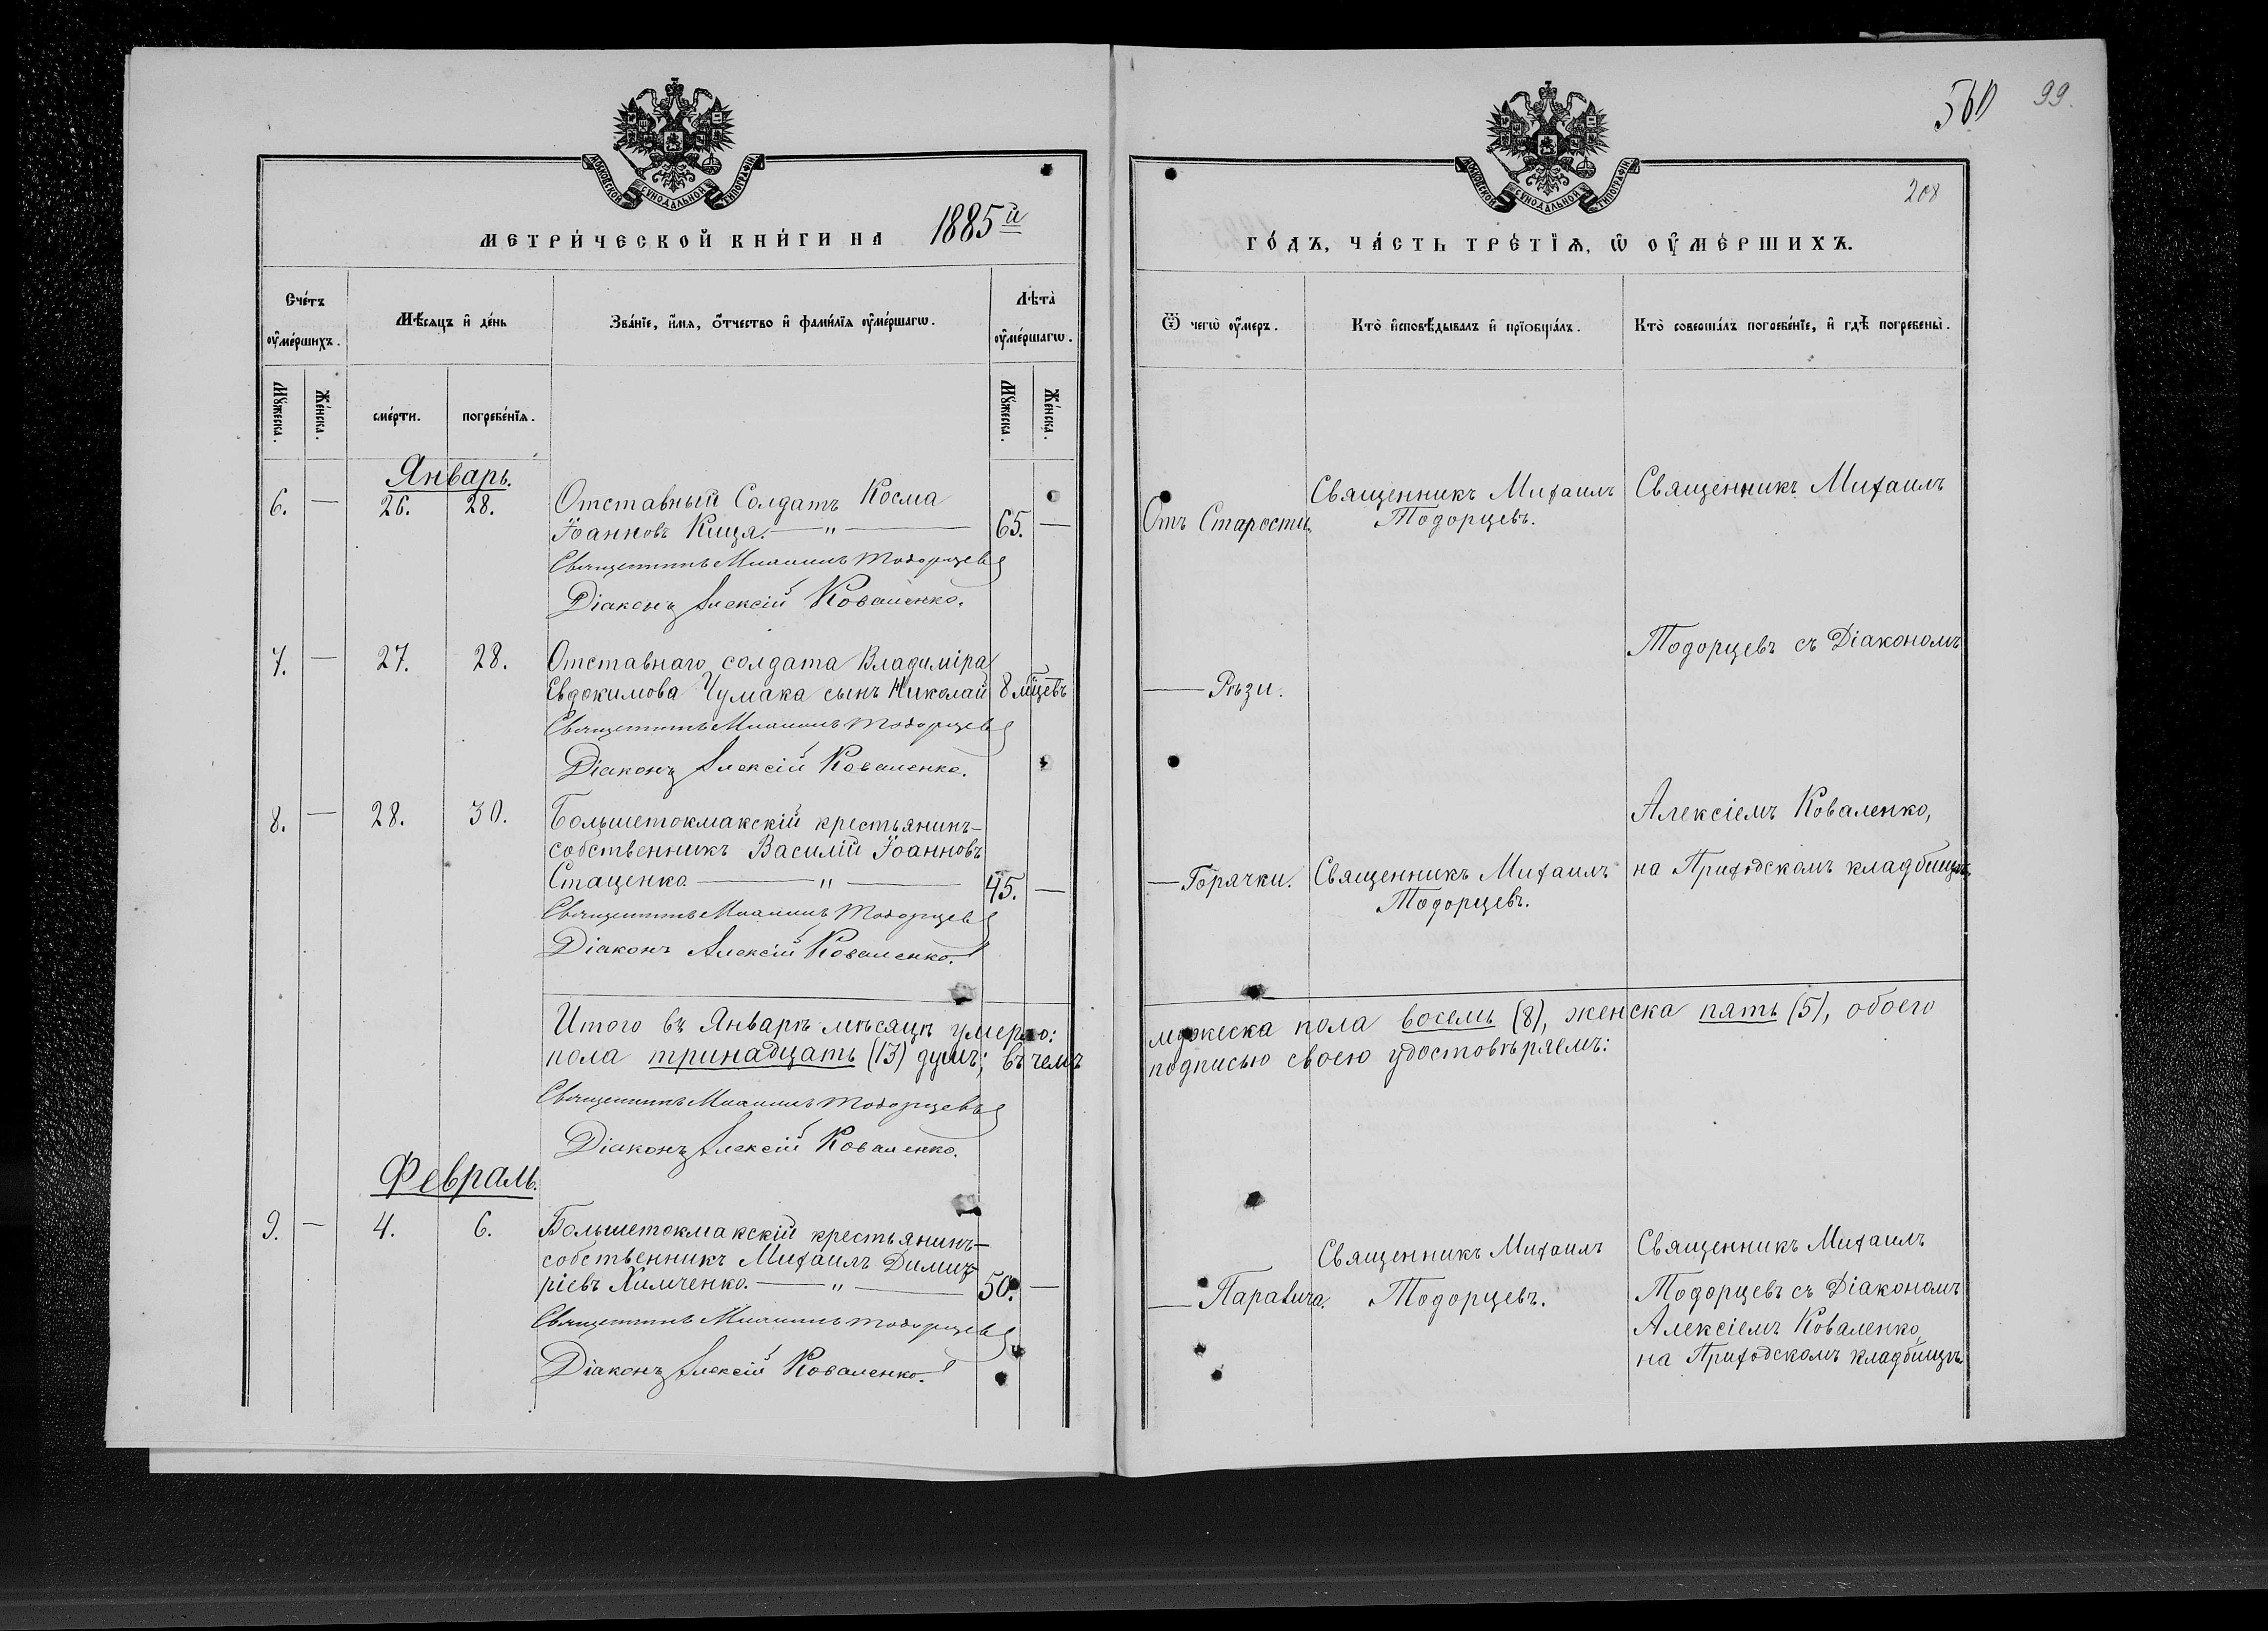 560 99.
МОСКОВСКОЙ СѴНОДАЛЬНОЙ ТИПОГРАФІИ
МОСКОВСКОЙ СѴНОДАЛЬНОЙ ТИПОГРАФІИ
208
МЕТРИ́ЧЕСКОЙ КНИ́ГИ НА 1885й
ГО́ДЪ, ЧА́СТЬ ТРЕ́ТІѦ, Ѡ ОУ҆МЕ́РШИХЪ.
Сче́тъ оу҆ме́ршихъ.
Мѣ́сяцъ и҆ де́нь
Зва́нїе, и҆́мя, о҆́тчество и҆ фами́лїя оу҆ме́ршагѡ.
Лѣта̀ оу҆ме́ршагѡ.
Ѿ чегѡ̀ оу҆́меръ.
Кто̀ и҆сповѣ́дывалъ и҆ прїѻбща́лъ.
Кто̀ соверша́лъ погребе́нїе, и҆ гдѣ̀ погребены̀.
Мꙋ́жеска.
Же́нска.
сме́рти.
погребе́нїя.
Мꙋ́жеска.
Же́нска.
Январь.
6. — 26. 28. Отставный Солдатъ Косма
Іоанновъ Кища. — " — 65. —
Священникъ Михаилъ Тодорцевъ
Діаконъ Алексій Коваленко.
Отъ Старости.
Священникъ Михаилъ
Тодорцевъ.
Священникъ Михаилъ
7. — 27. 28. Отставнаго солдата Владиміра
Евдокимова Чумака сынъ Николай 8 мцевъ
Священникъ Михаилъ Тодорцевъ
Діаконъ Алексій Коваленко.
— Рѣзи.
Тодорцевъ съ Діакономъ
8. — 28. 30. Большетокмакскій крестьянинъ-
собственникъ Василій Іоанновъ
Стаценко. — " — 45. —
Священникъ Михаилъ Тодорцевъ
Діаконъ Алексій Коваленко.
— Горячки.
Священникъ Михаилъ
Тодорцевъ.
Алексіемъ Коваленко,
на Приходскомъ кладбищѣ.
Итого въ Январѣ мѣсяцѣ умерло: мужеска пола восемь (8), женска пять (5), обоего
пола тринадцать (13) душъ; въ чемъ подписью своею удостовѣряемъ:
Священникъ Михаилъ Тодорцевъ
Діаконъ Алексій Коваленко.
Февраль.
9. — 4. 6. Большетокмакскій крестьянинъ-
собственникъ Михаилъ Димит-
ріевъ Химченко. — " — 50. —
Священникъ Михаилъ Тодорцевъ
Діаконъ Алексій Коваленко.
— Паралича.
Священникъ Михаилъ
Тодорцевъ.
Священникъ Михаилъ
Тодорцевъ съ Діакономъ
Алексіемъ Коваленко
на Приходскомъ кладбищѣ.